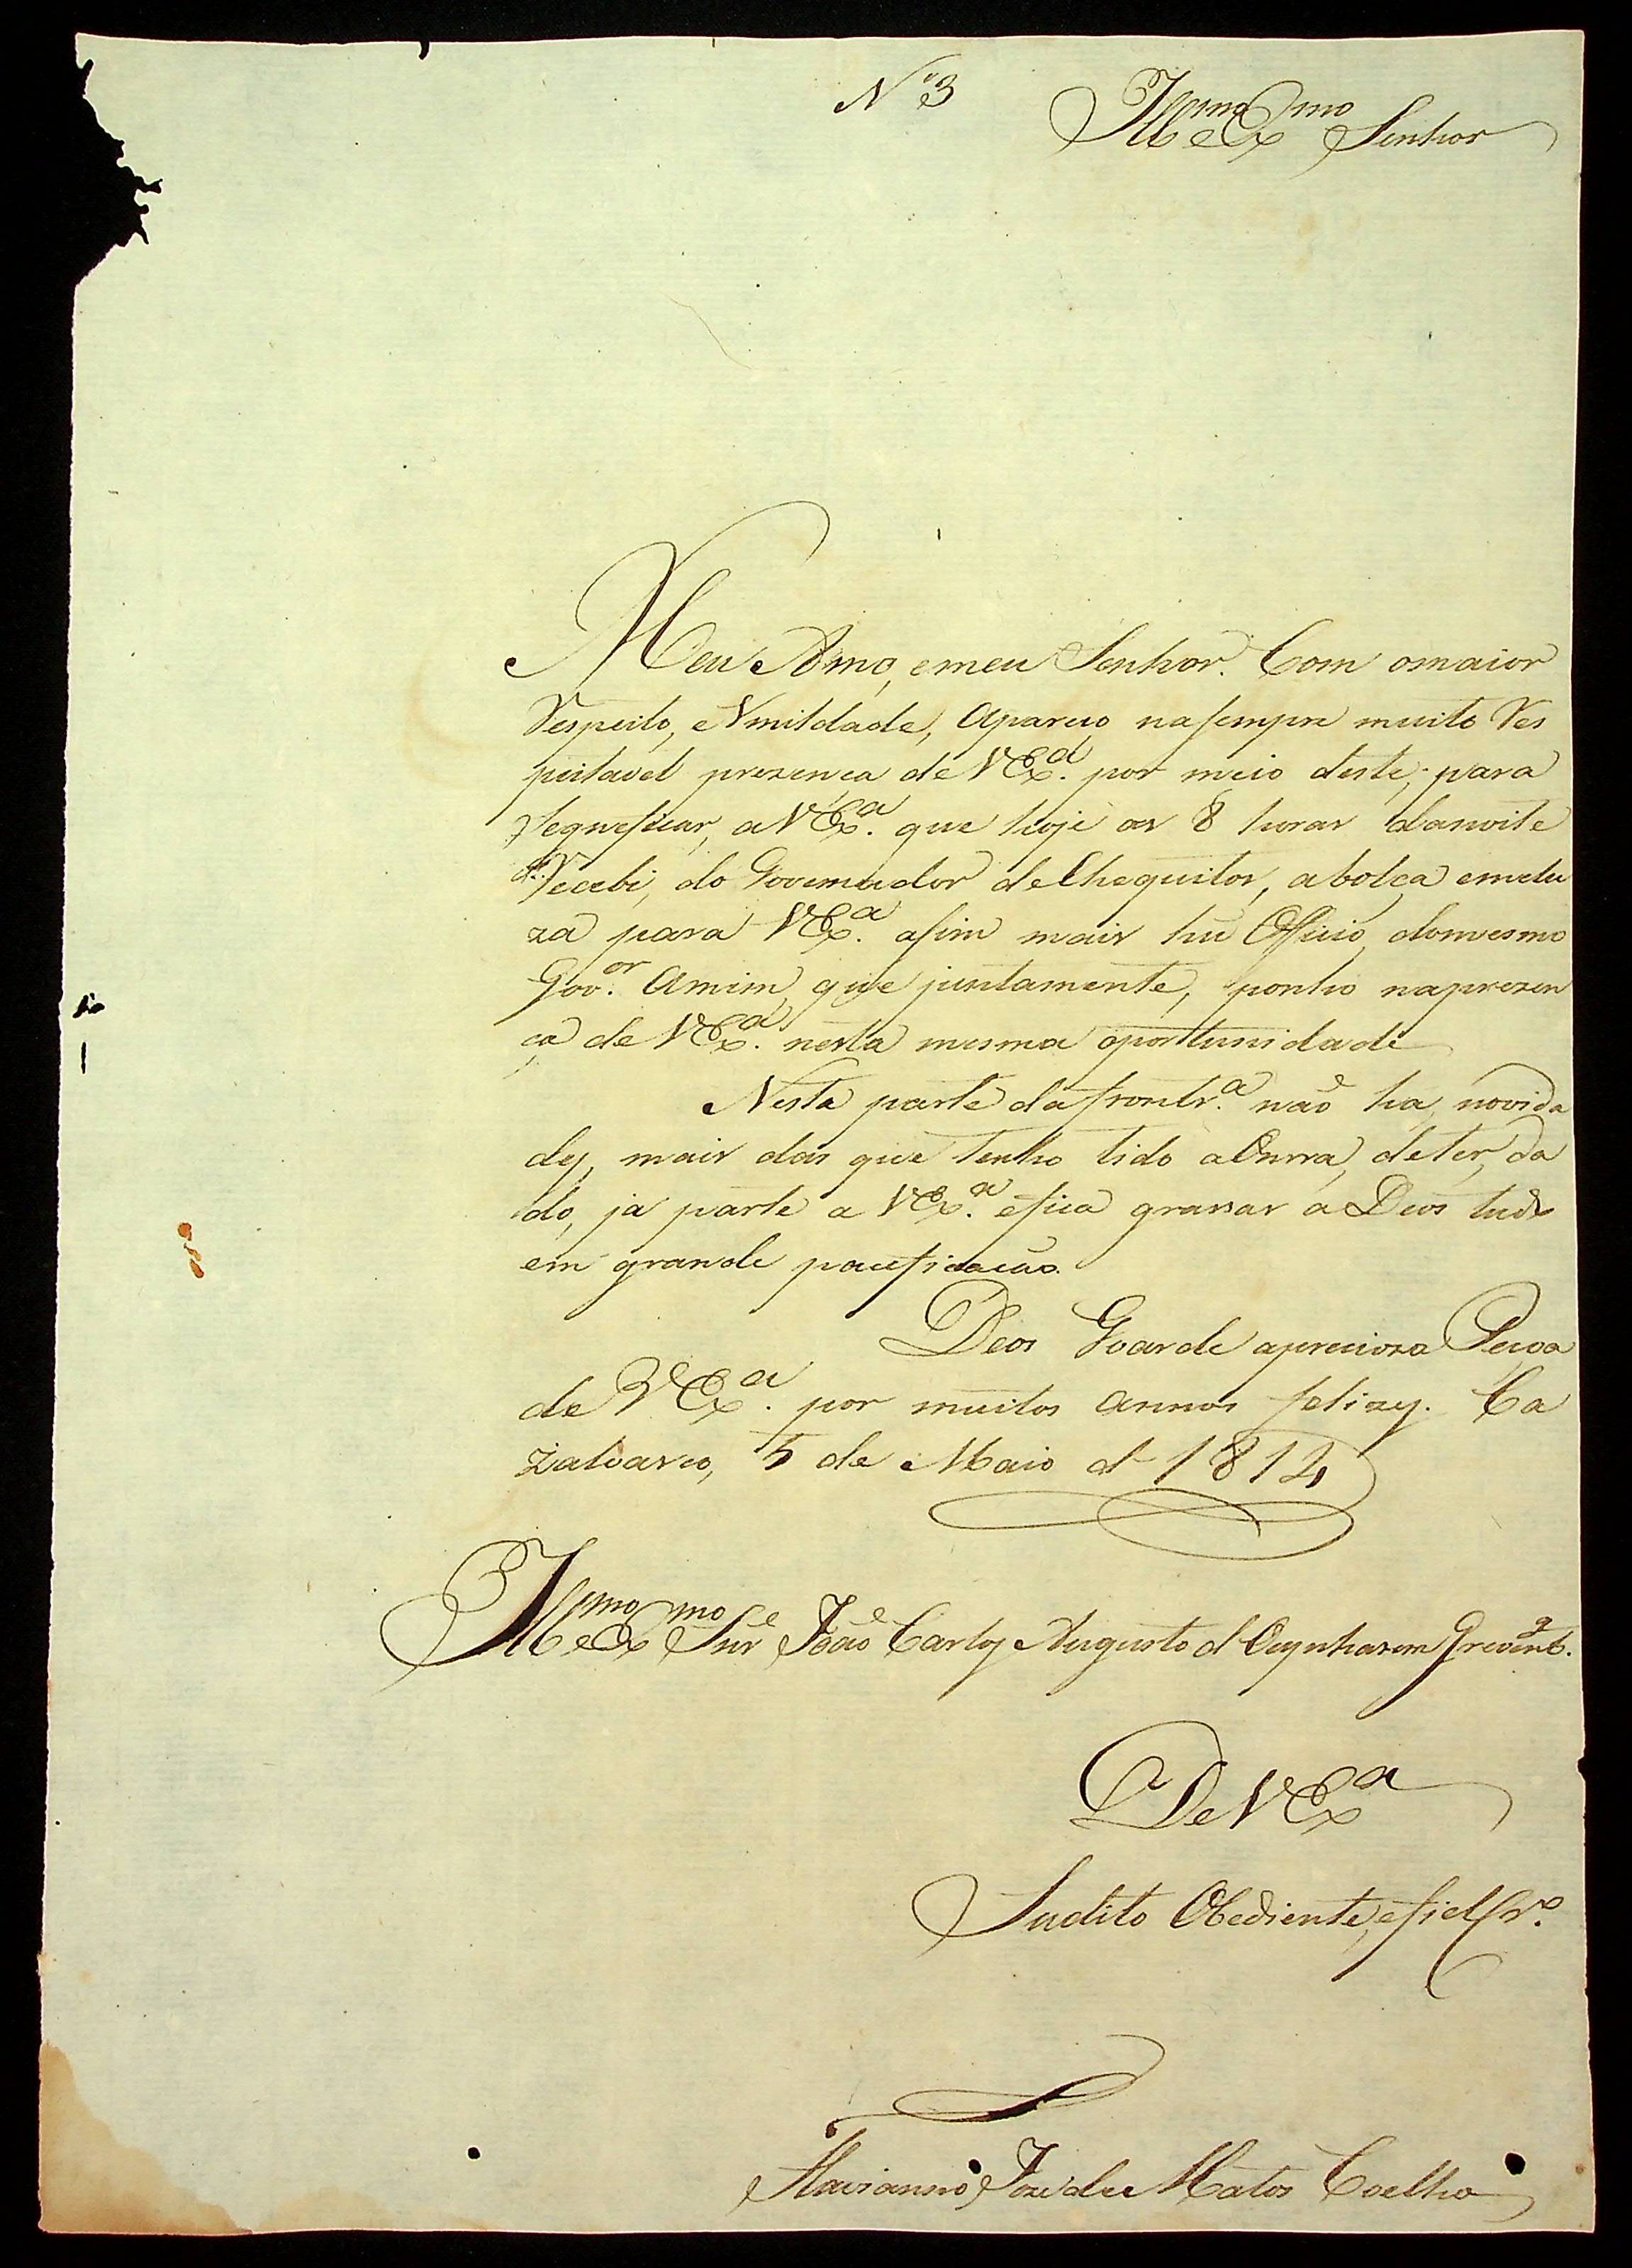 Nº 3
Illmo e Exmo Senhor
Meu Amo, e meu Senhor. Com omaior
Respeito, eVmildade, apareço, nasempre muito Res
peitavel prezença de VExª. por meio deste, para
segneficar, aVExª. que hoje as 8 horas danoite
Recebi, do Governador deChequitos, abolça emclu
za para VExª. asim mais hũ Officio, domesmo
Govor. amim, que juntamente, ponho naprezen
ça de VExª. nesta mesma oportunidade
Nesta parte dafrontrª. não ha, novida
des, mais das que tenho tido aOnrra, deter, da
do, ja parte a VExª. efica grassas a Deos tudo
em grande pacificacão.
Deos Guarde apreciosa Peçoa
de VExª. por muitos annos felizes. Ca
zalvasco, 5 de Maio d 1814
Illmo e Exmo Snr João Carlos Augusto d Oeynhasem Grevenbg.
De VExª
Sudito Obediente, efiel Cro.
Flavianno Joze de Matos Coelho